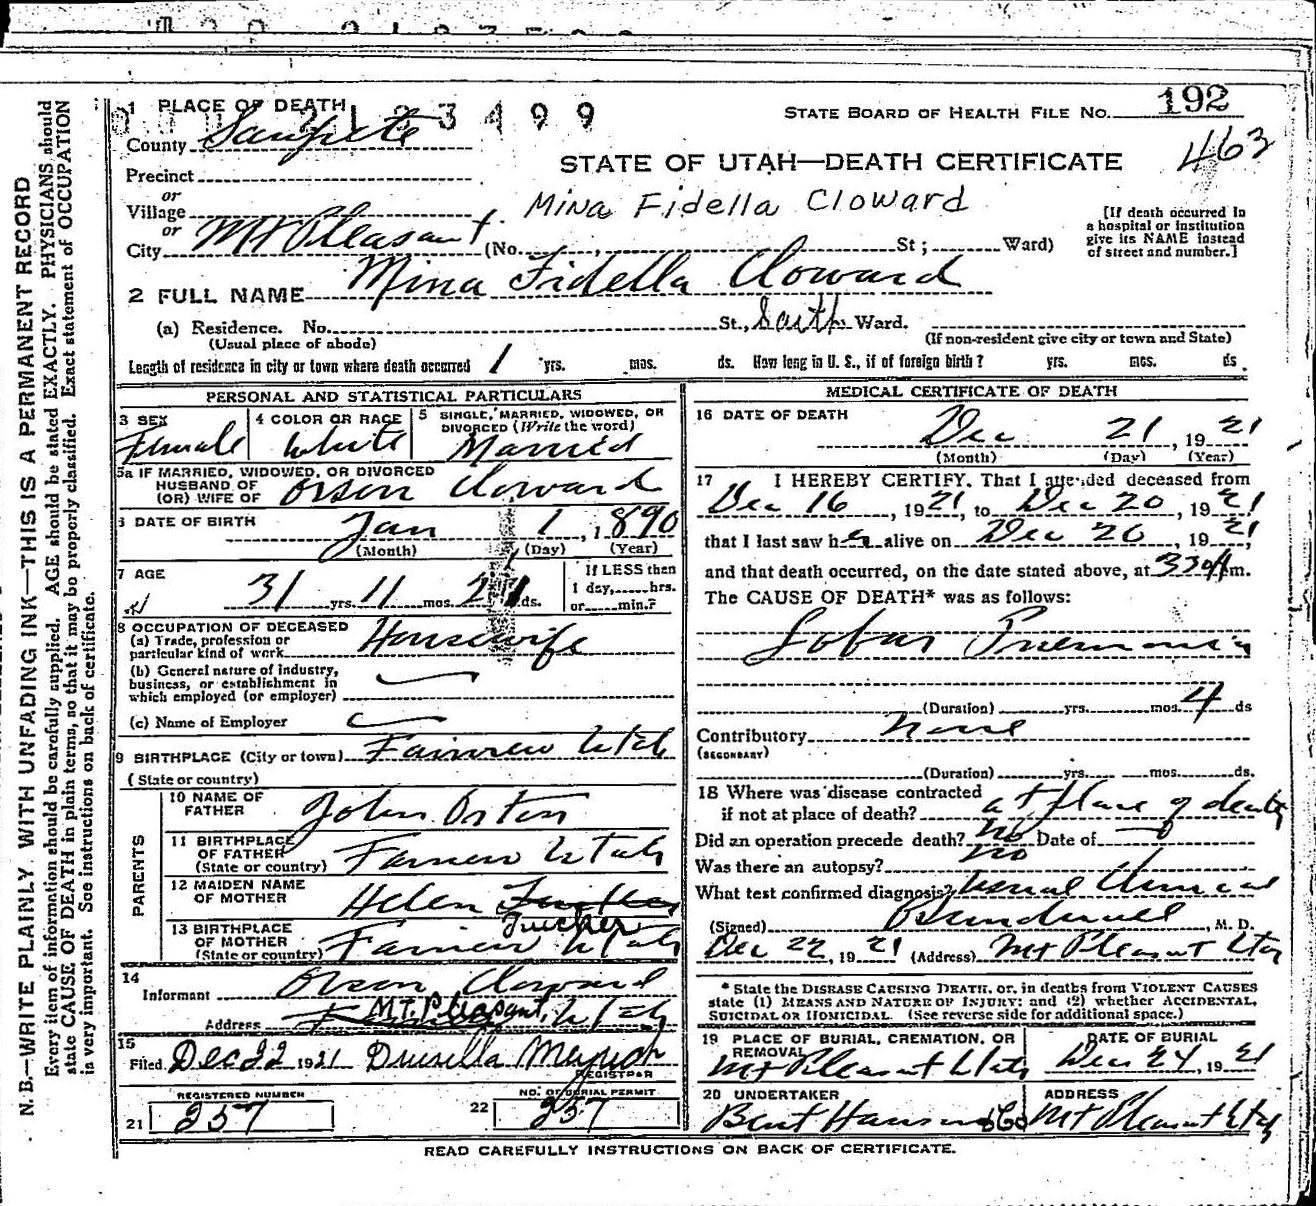 1 PLACE OF DEATH
2183499
STATE BOARD OF HEALTH FILE NO. 192
463
County Sanpete
STATE OF UTAH—DEATH CERTIFICATE
Precinct
or
Village
Mina Fidella Cloward
or
City Mt Pleasant (No. St; Ward)
[If death occurred in a hospital or institution give its NAME instead of street and number.]
2 FULL NAME Mina Fidella Cloward
(a) Residence. No. St., South Ward.
(Usual place of abode)
(If non-resident give city or town and State)
Length of residence in city or town where death occurred 1 yrs. mos. ds. How long in U. S., if of foreign birth? yrs. mos. ds.
PERSONAL AND STATISTICAL PARTICULARS
3 SEX
Female
4 COLOR OR RACE
White
5 SINGLE, MARRIED, WIDOWED, OR DIVORCED (Write the word)
Married
5a IF MARRIED, WIDOWED, OR DIVORCED
HUSBAND OF
(OR) WIFE OF Orson Cloward
6 DATE OF BIRTH Jan 1, 1890
(Month) (Day) (Year)
7 AGE
31 yrs. 11 mos. ds.
If LESS then
1 day, hrs.
or min.?
8 OCCUPATION OF DECEASED
(a) Trade, profession or
particular kind of work Housewife
(b) General nature of industry,
business, or establishment in
which employed (or employer)
(c) Name of Employer
9 BIRTHPLACE (City or town) Fairview Utah
(State or country)
PARENTS
10 NAME OF
FATHER John Orton
11 BIRTHPLACE
OF FATHER
(State or country) Fairview Utah
12 MAIDEN NAME
OF MOTHER Helen Tucker
13 BIRTHPLACE
OF MOTHER
(State or country) Fairview Utah
14
Informant Orson Cloward
Address Mt. Pleasant, Utah
15
Filed Dec 22 1921 Drusilla
REGISTRAR
REGISTERED NUMBER
21 257
NO. OF BURIAL PERMIT
22 257
MEDICAL CERTIFICATE OF DEATH
16 DATE OF DEATH
Dec 21, 1921
(Month) (Day) (Year)
17 I HEREBY CERTIFY. That I attended deceased from
Dec 16, 1921, to Dec 20, 1921
that I last saw her alive on Dec 20, 1921,
and that death occurred, on the date stated above, at 330 A m.
The CAUSE OF DEATH* was as follows:
Lobar Pneumonia
(Duration) yrs. mos. 4 ds
Contributory None
(SECONDARY)
(Duration) yrs. mos. ds.
18 Where was disease contracted
if not at place of death? at place of death
Did an operation precede death? No Date of
Was there an autopsy? No
What test confirmed diagnosis? Usual Clinical
(Signed) , M. D.
Dec 22, 1921 (Address) Mt Pleasant Utah
* State the DISEASE CAUSING DEATH, or, in deaths from VIOLENT CAUSES
state (1) MEANS AND NATURE OF INJURY; and (2) whether ACCIDENTAL,
SUICIDAL OR HOMICIDAL. (See reverse side for additional space.)
19 PLACE OF BURIAL, CREMATION, OR
REMOVAL
Mt Pleasant Utah
DATE OF BURIAL
Dec 24, 1921
20 UNDERTAKER
Bent Hansen &Co
ADDRESS
Mt Pleasant Utah
READ CAREFULLY INSTRUCTIONS ON BACK OF CERTIFICATE.
N. B.—WRITE PLAINLY, WITH UNFADING INK—THIS IS A PERMANENT RECORD
Every item of information should be carefully supplied. AGE should be stated EXACTLY. PHYSICIANS should
state CAUSE OF DEATH in plain terms, so that it may be properly classified. Exact statement of OCCUPATION
is very important. See instructions on back of certificate.